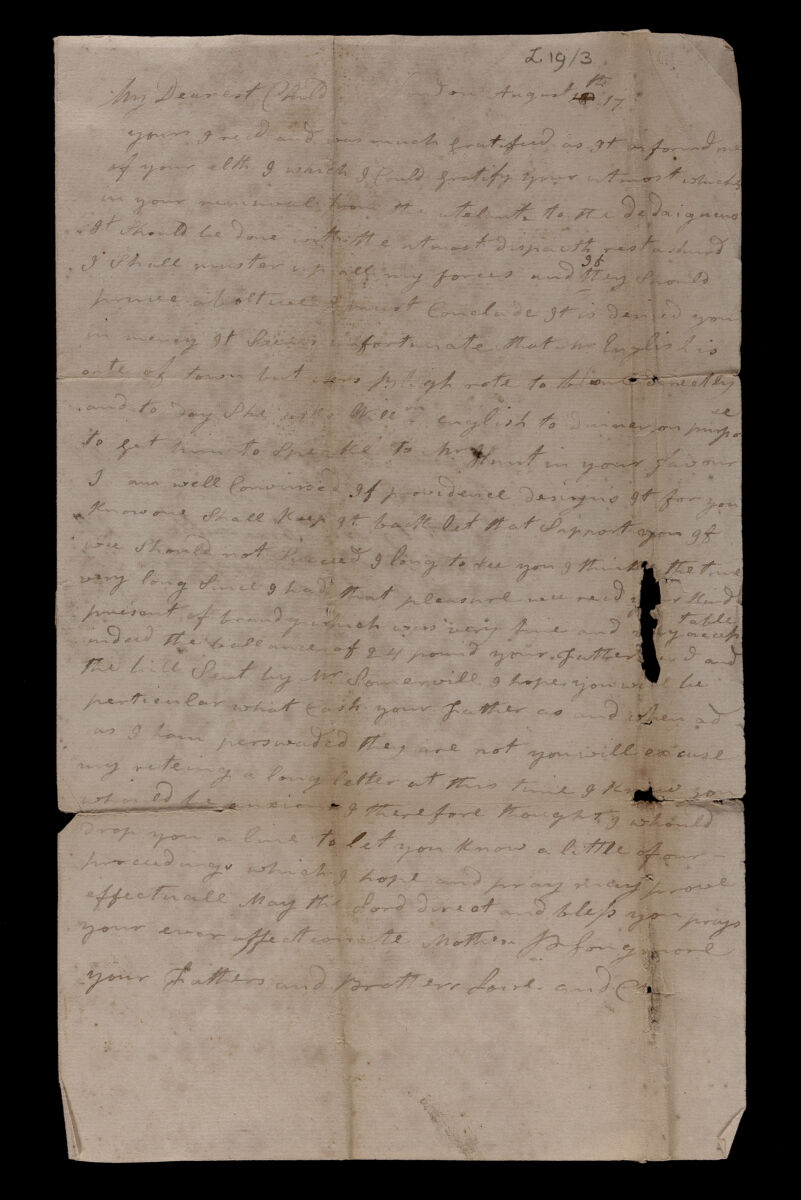 L 19/3
My Dearest Child London August th 17
yours I recd and was much gratified as It informd me
of your elth I which I Could gratify your utmost whiches
in your removal from the to the Dedaigneus
It should be done with the utmost dispatch rest ashurd
I Shall muster up all my forces and If they Should
prove abortive I must Conclude It is denied you
in mercy It Seems unfortunate that Mr English is
oute of town but mrs Bligh rote to him directly
and to day She asks Willm english to dinner on purpose
to get him to Speake to Mr Hunt in your favour
I am well Convinsed If providence designs It for you
Knowone Shall Keep It back let that Support you If
wee should not Succeed I long to see you I think the time
very long Since I had that pleasure wee recd your Kind
present of brandy which was very fine and very acceptable
indeed the ballance of 24 pound your Father recd and
the bill Sent by Mr Somervill I hope you will be
particular what Cash your Father as and when ad
as I am perswaded they are not you will excuse
my riteing a long letter at this time I Know you
whould be anxious I therefore thought I whould
drop you a line to let you Know a little of our
proceedings which I hope and pray may prove
effectuall May the Lord direct and bless you prays
your ever affectionate Mother Longmore
your Fathers and Brothers Love and